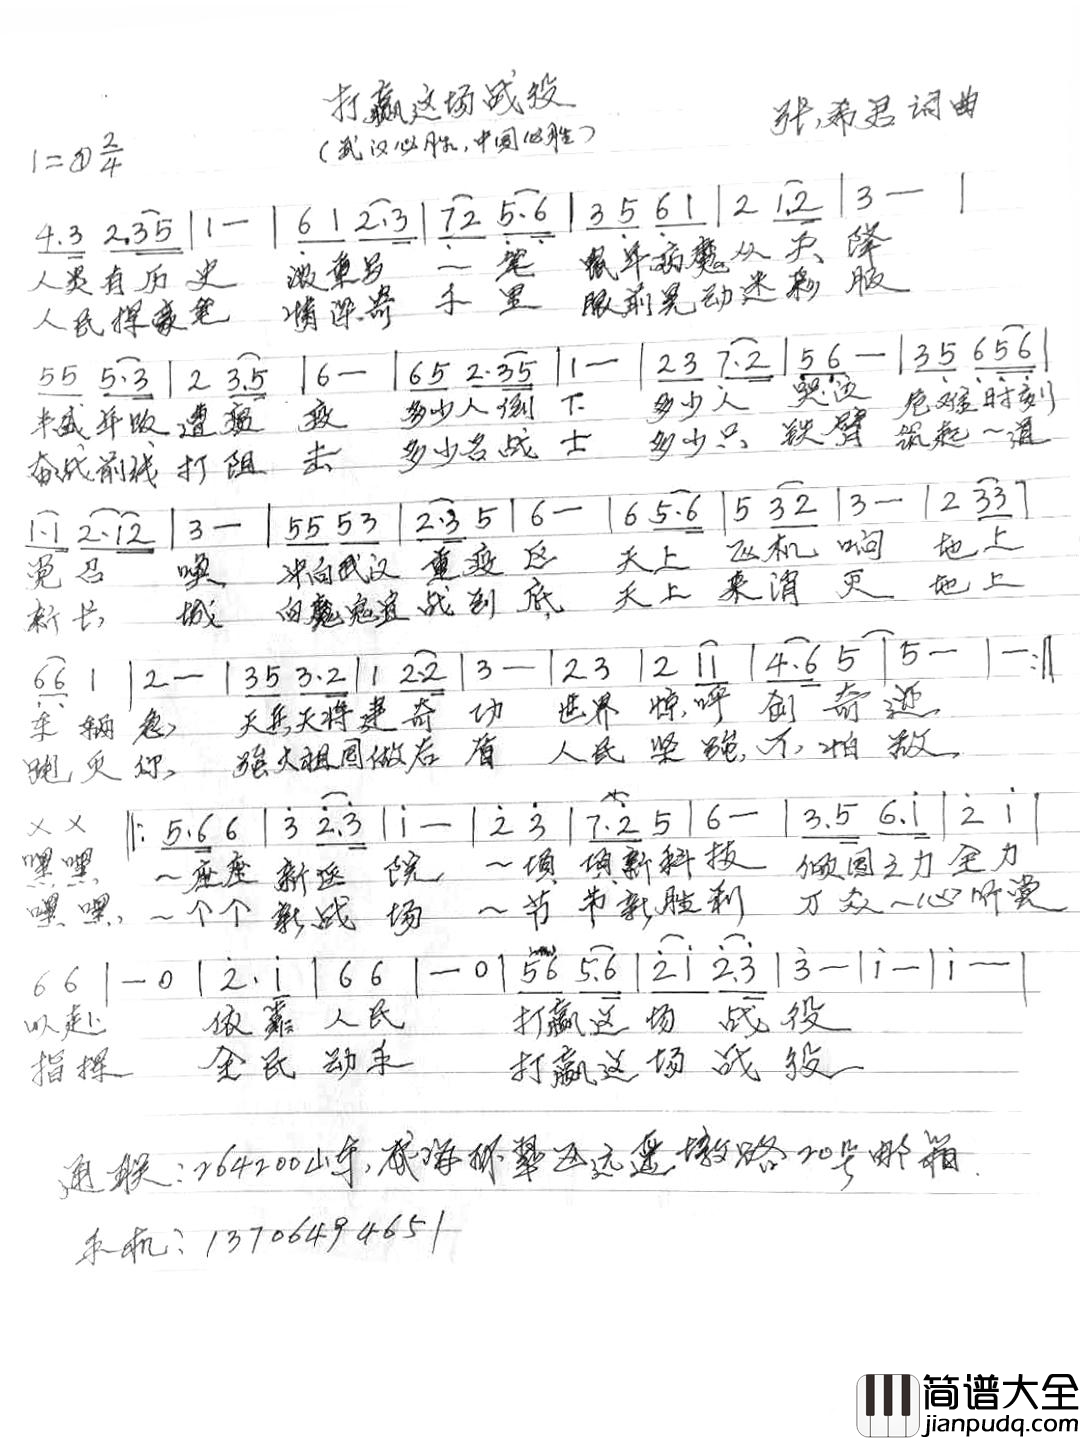 打赢这场战役
(武汉必胜,中国必胜)
张希君词曲
1=① 2/4
4.3 2.35 | 1 — | 6 1 2.3 | 72 5.6 | 3 5 6 1 | 2 1.2 | 3 — |
人类有历史 浓重写 一笔 鼠年病魔从天降
人民挥豪笔 情深寄手里 眼前晃动迷彩服
55 5.3 | 2 3.5 | 6 — | 65 2.35 | 1 — | 23 7.2 | 56 — | 35 656 |
年遭 疫 多少人倒下 多少人哭泣 危难时刻
奋战前线打阻击 多少名战士 多少只铁臂 筑起一道
1.1 2.12 | 3 — | 55 53 | 2.3 5 | 6 — | 6 5.6 | 5 32 | 3 — | 2 33 |
党召唤, 冲向武汉重疫区 天上飞机 地上
新长城 向魔寇宣战到底, 天上来消灭 地上
66 1 | 2 — | 35 3.2 | 1 2.2 | 3 — | 23 | 2 11 | 4.6 5 | 5 — | — :||
车辆急, 天兵天将建奇功 世界惊呼创奇迹,
跑灭你, 强大祖国做后盾 人民坚强,不怕敌,
X X ||: 5.6 6 | 3 2.3 | 1 — | 2 3 | 7.2 5 | 6 — | 3.5 6.1 | 2 1 |
嘿嘿, 一座座新医院, 一项项新科技 倾国之力全力
嘿嘿, 一个个新战场 一节节新胜利 万众一心听党
6 6 | — 0 | 2. 1 | 6 6 | — 0 | 56 5.6 | 2 1 2.3 | 3 — | 1 — | 1 — |
以赴 依靠人民 打赢这场战役
指挥 全民动手 打赢这场战役
通联:264200山东,威海环翠区远遥墩路20号邮箱.
手机:13706494651
简谱大全
jianpudq.com